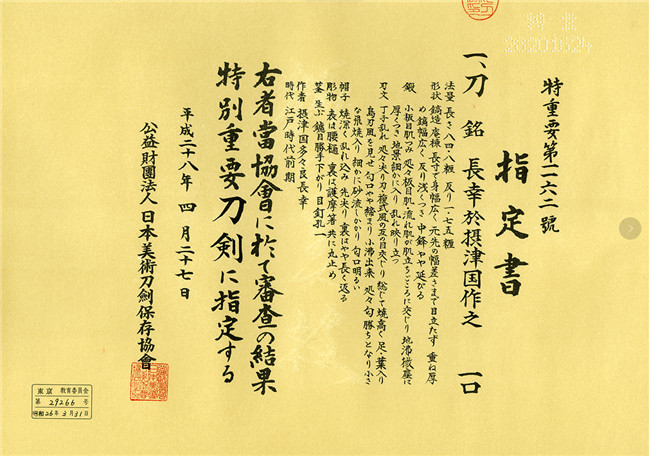 特重要第一一六二號
指定書
一、刀 銘 長幸於摂津国作之 一口
法量 長さ八四・八糎 反り一・七五糎
形状 鎬造 庵棟 長寸で身幅広く 元先の幅差さまで目立たず 重ね厚
め 鎬幅広く 反り浅くつき 中鋒やや延びる
鍛 小板目肌つみ 処々板目肌・流れ肌が肌立ちごころに交じり 地沸微塵に
厚くつき 地景細かに入り 乱れ映り立つ
刃文 丁子乱れ 処々尖り刃・複式風の互の目交じり 総じて焼高く 足・葉入り
鳥刃風を見せ 匂口やや締まり 小沸出来 処々匂勝ちとなり 小さ
な飛焼入り 細かに砂流しかかり 匂口明るい
帽子 焼深く乱れ込み 先尖り 裏はやや長く返る
彫物 表は腰樋 裏は護摩箸 共に丸止め
茎 生ぶ 鑢目勝手下がり 目釘孔一
作者 摂津国多々良長幸
時代 江戸時代前期
右者當協會に於て審査の結果
特別重要刀剣に指定する
平成二十八年 四月二十七日
公益財團法人 日本美術刀劍保存協會
東京 教育委員会
第 29266 号
昭和26年3月31日
20201024